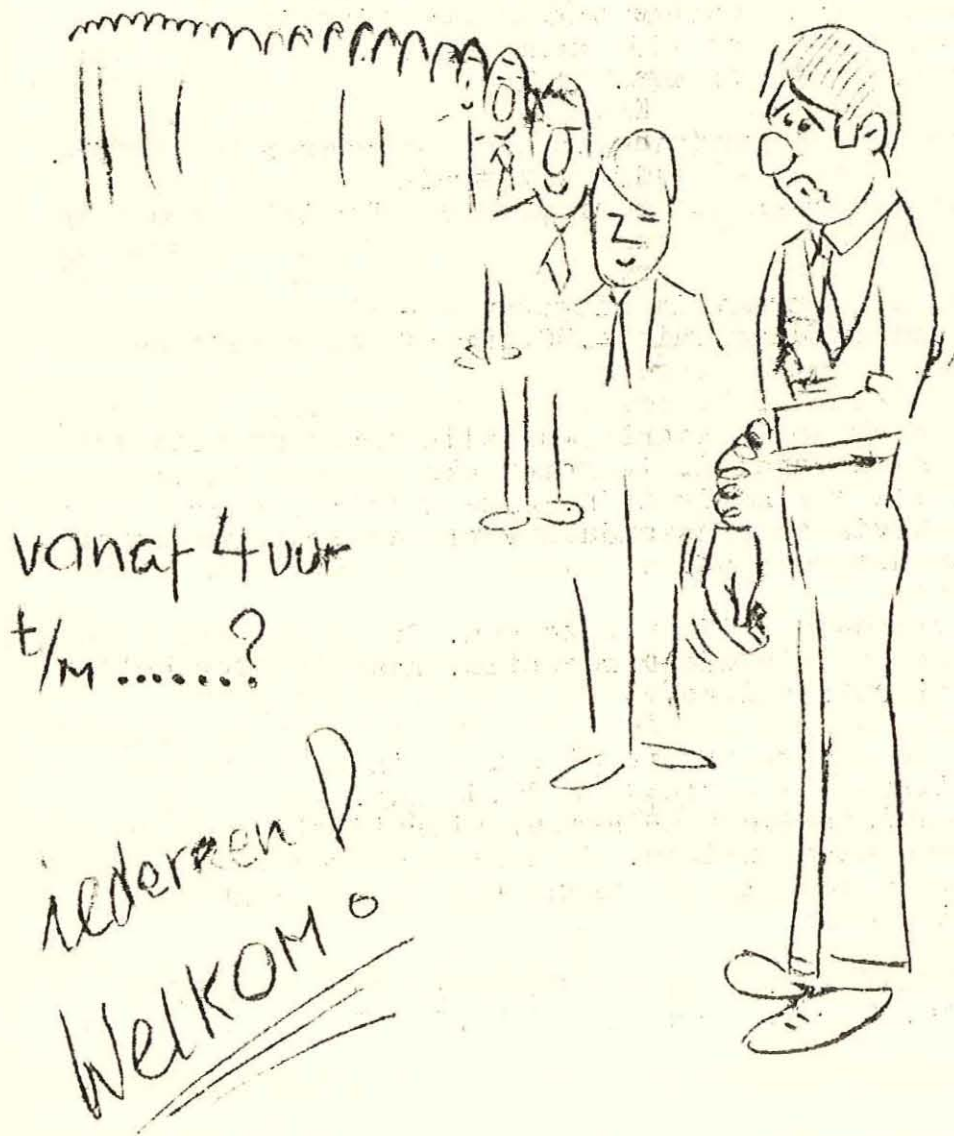 vanaf 4 uur
t/m .......?
iedereen
Welkom!